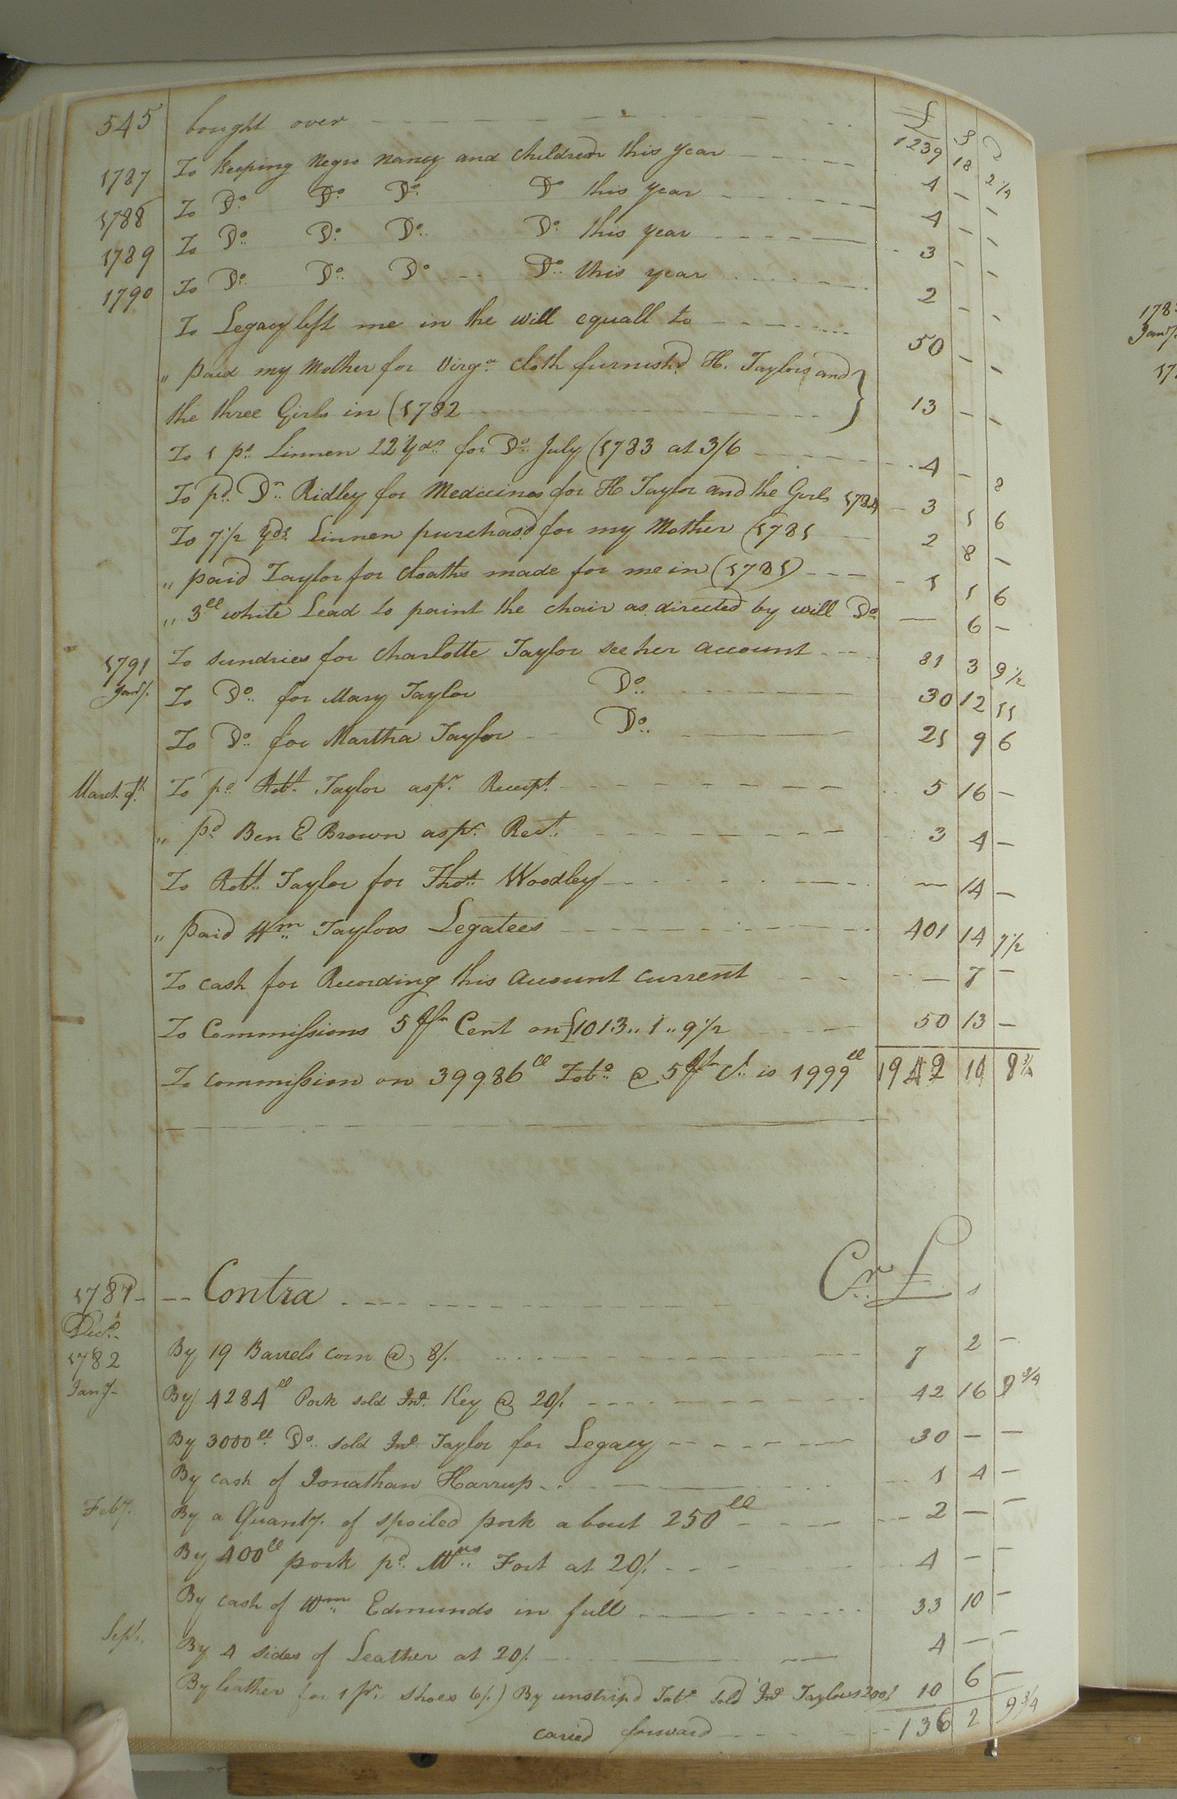 545 bought over £ S D
1239 18 2 1/4
1787 To keeping Negro Nancy and Children this year 4 — —
1788 To Do Do Do Do this year 4 — —
1789 To Do Do Do Do this year 3 — —
1790 To Do Do Do Do this year 2 — —
To Legacy left me in the will equall to 50 — —
" paid my Mother for Virga Cloth furnishd H. Taylors and
the three Girls in (1782 13 — —
To 1 ps Linnen 22 Yds for Do July (1783 at 3/6 4 — 8
To pd Dr Ridley for Medicines for H Taylor and the Girls 1784 3 1 6
To 7 1/2 Yds Linnen purchasd for my Mother (1785 2 8 —
" paid Taylor for Cloaths made for me in (1785) 1 1 6
" 3ll white Lead to paint the chair as directed by will Do — 6 —
1791 To sundries for Charlotte Taylor see her account 81 3 9 1/2
Jany To Do for Mary Taylor Do 30 12 11
To Do for Martha Taylor Do 21 9 6
March To pd Robt Taylor as pr Receipt 5 16 —
" pd Ben E Brown as pr Rect 3 4 —
To Robt Taylor for Thos Woodley — 14 —
" Paid Wm Taylors Legatees 401 14 7 1/2
To cash for Recording this Account Current — 7 —
To Commissions 5 pr Cent on £1013 .. 1 .. 9 1/2 50 13 —
To commission on 39986ll Tobo @ 5 pr Ct is 1999ll 1942 10 8 3/4
1781 Contra Cr £
Decr
1782 By 19 Barrels corn @ 8/. 7 2 —
Jany By 4284ll Pork sold Jno Key @ 20/. 42 16 9 3/4
By 3000ll Do sold Jno Taylor for Legacy 30 — —
By cash of Jonathan Harrup 1 4 —
Feby By a Quanty of spoiled pork about 250ll 2 — —
By 400ll pork pd Mrs Fort at 20/. 4 — —
By cash of Wm Edmunds in full 33 10 —
Sept By 4 sides of Leather at 20/. 4 — —
By leather for 1 pr shoes 6/.) By unstripd Tobo sold Jno Taylor 200/ 10 6 —
caried forward 136 2 9 3/4
178
Jany
17